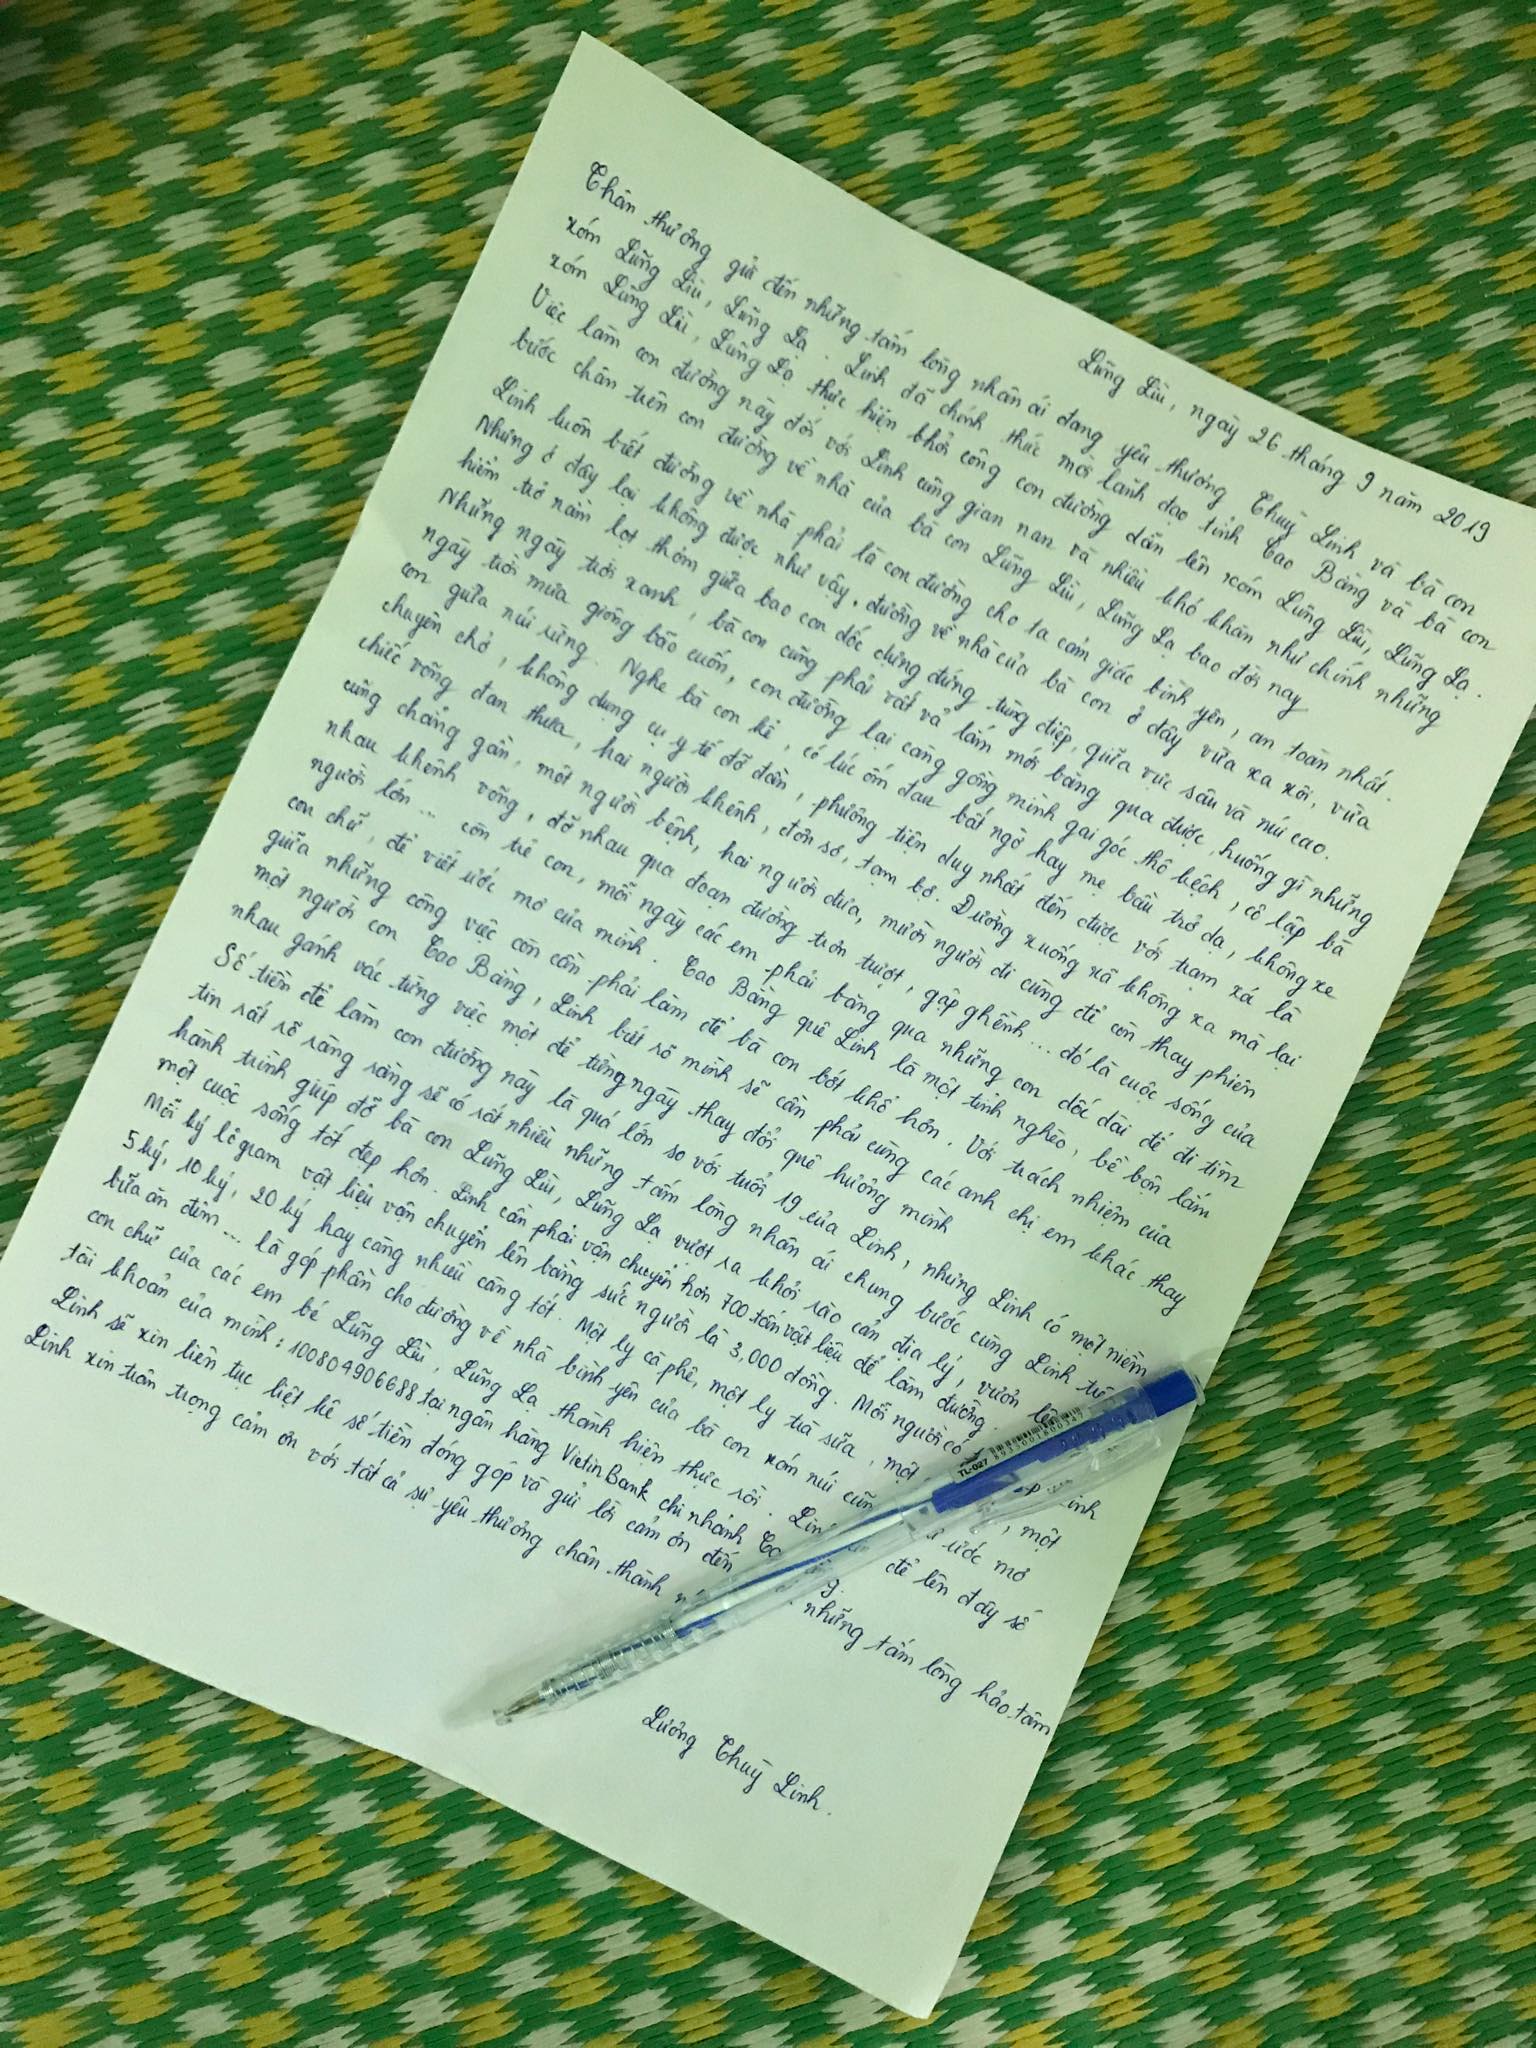 Lũng Lìu, ngày 26 tháng 9 năm 2019
Thân thương gửi đến những tấm lòng nhân ái đang yêu thương Thuỳ Linh và bà con
xóm Lũng Lìu, Lũng Lạ. Linh đã chính thức mời lãnh đạo tỉnh Cao Bằng và bà con
xóm Lũng Lìu, Lũng Lạ thực hiện khởi công con đường dẫn lên xóm Lũng Lìu, Lũng Lạ.
Việc làm con đường này đối với Linh cũng gian nan và nhiều khó khăn như chính những
bước chân trên con đường về nhà của bà con Lũng Lìu, Lũng Lạ bao đời nay
Linh luôn biết đường về nhà phải là con đường cho ta cảm giác bình yên, an toàn nhất.
Nhưng ở đây lại không được như vậy, đường về nhà của bà con ở đây vừa xa xôi, vừa
hiểm trở nằm lọt thỏm giữa bao con dốc dựng đứng trùng điệp, giữa vực sâu và núi cao.
Những ngày trời xanh, bà con cũng phải vất vả lắm mới băng qua được, huống gì những
ngày trời mưa giông bão cuốn, con đường lại càng gồng mình gai góc thô kệch, cô lập bà
con giữa núi rừng. Nghe bà con kể, có lúc ốm đau bất ngờ hay mẹ bầu trở dạ, không xe
chuyên chở, không dụng cụ y tế đỡ đần, phương tiện duy nhất đến được với trạm xá là
chiếc võng đan thưa, hai người khênh, đơn sơ, tạm bợ. Đường xuống xã không xa mà lại
cũng chẳng gần, một người bệnh, hai người đưa, mười người đi cùng để còn thay phiên
nhau khênh võng, đỡ nhau qua đoạn đường trơn trượt, gập ghềnh... đó là cuộc sống của
người lớn... còn trẻ con, mỗi ngày các em phải băng qua những con dốc dài để đi tìm
con chữ, để viết ước mơ của mình. Cao Bằng quê Linh là một tỉnh nghèo, bề bộn lắm
giữa những công việc còn cần phải làm để bà con bớt khổ hơn. Với trách nhiệm của
một người con Cao Bằng, Linh biết rõ mình sẽ cần phải cùng các anh chị em khác thay
nhau gánh vác từng việc một để từng ngày thay đổi quê hương mình
Số tiền để làm con đường này là quá lớn so với tuổi 19 của Linh, nhưng Linh có một niềm
tin rất rõ ràng rằng sẽ có rất nhiều những tấm lòng nhân ái chung bước cùng Linh
hành trình giúp đỡ bà con Lũng Lìu, Lũng Lạ vượt ra khỏi rào cản địa lý, vươn
một cuộc sống tốt đẹp hơn. Linh cần phải vận chuyển hơn 700 tấn vật liệu để làm đường.
Mỗi ký lô gram vật liệu vận chuyển lên bằng sức người là 3,000 đồng. Mỗi người có
5 ký, 10 ký, 20 ký hay càng nhiều càng tốt. Một ly cà phê, một ly trà sữa, một
bữa ăn đêm... là góp phần cho đường về nhà bình yên của bà con xóm núi ước mơ
con chữ của các em bé Lũng Lìu, Lũng Lạ thành hiện thực rồi. để lên đây số
tài khoản của mình: 100804906688 tại ngân hàng VietinBank chi nhánh
Linh sẽ xin liên tục liệt kê số tiền đóng góp và gửi lời cảm ơn đến những tấm lòng hảo tâm
Linh xin trân trọng cảm ơn với tất cả sự yêu thương chân thành
Lương Thuỳ Linh.
TL-027